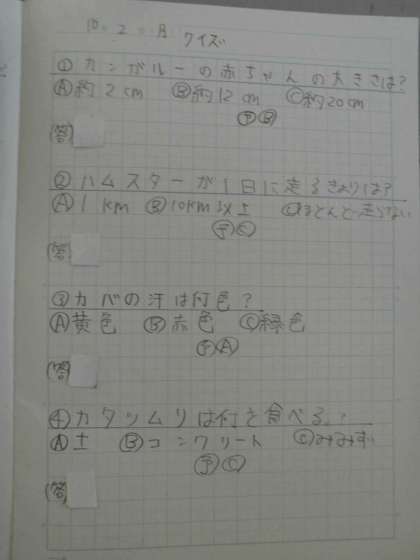 10.2.日 クイズ
①カンガルーの赤ちゃんの大きさは?
Ⓐ約2cm Ⓑ約12cm Ⓒ約20cm
予Ⓑ
(答)
②ハムスターが1日に走るきょりは?
Ⓐ1km Ⓑ10km以上 Ⓒほとんど走らない
予Ⓒ
(答)
③カバの汗は何色?
Ⓐ黄色 Ⓑ赤色 Ⓒ緑色
予Ⓐ
(答)
④カタツムリは何を食べる?
Ⓐ土 Ⓑコンクリート Ⓒみみず
予Ⓒ
(答)